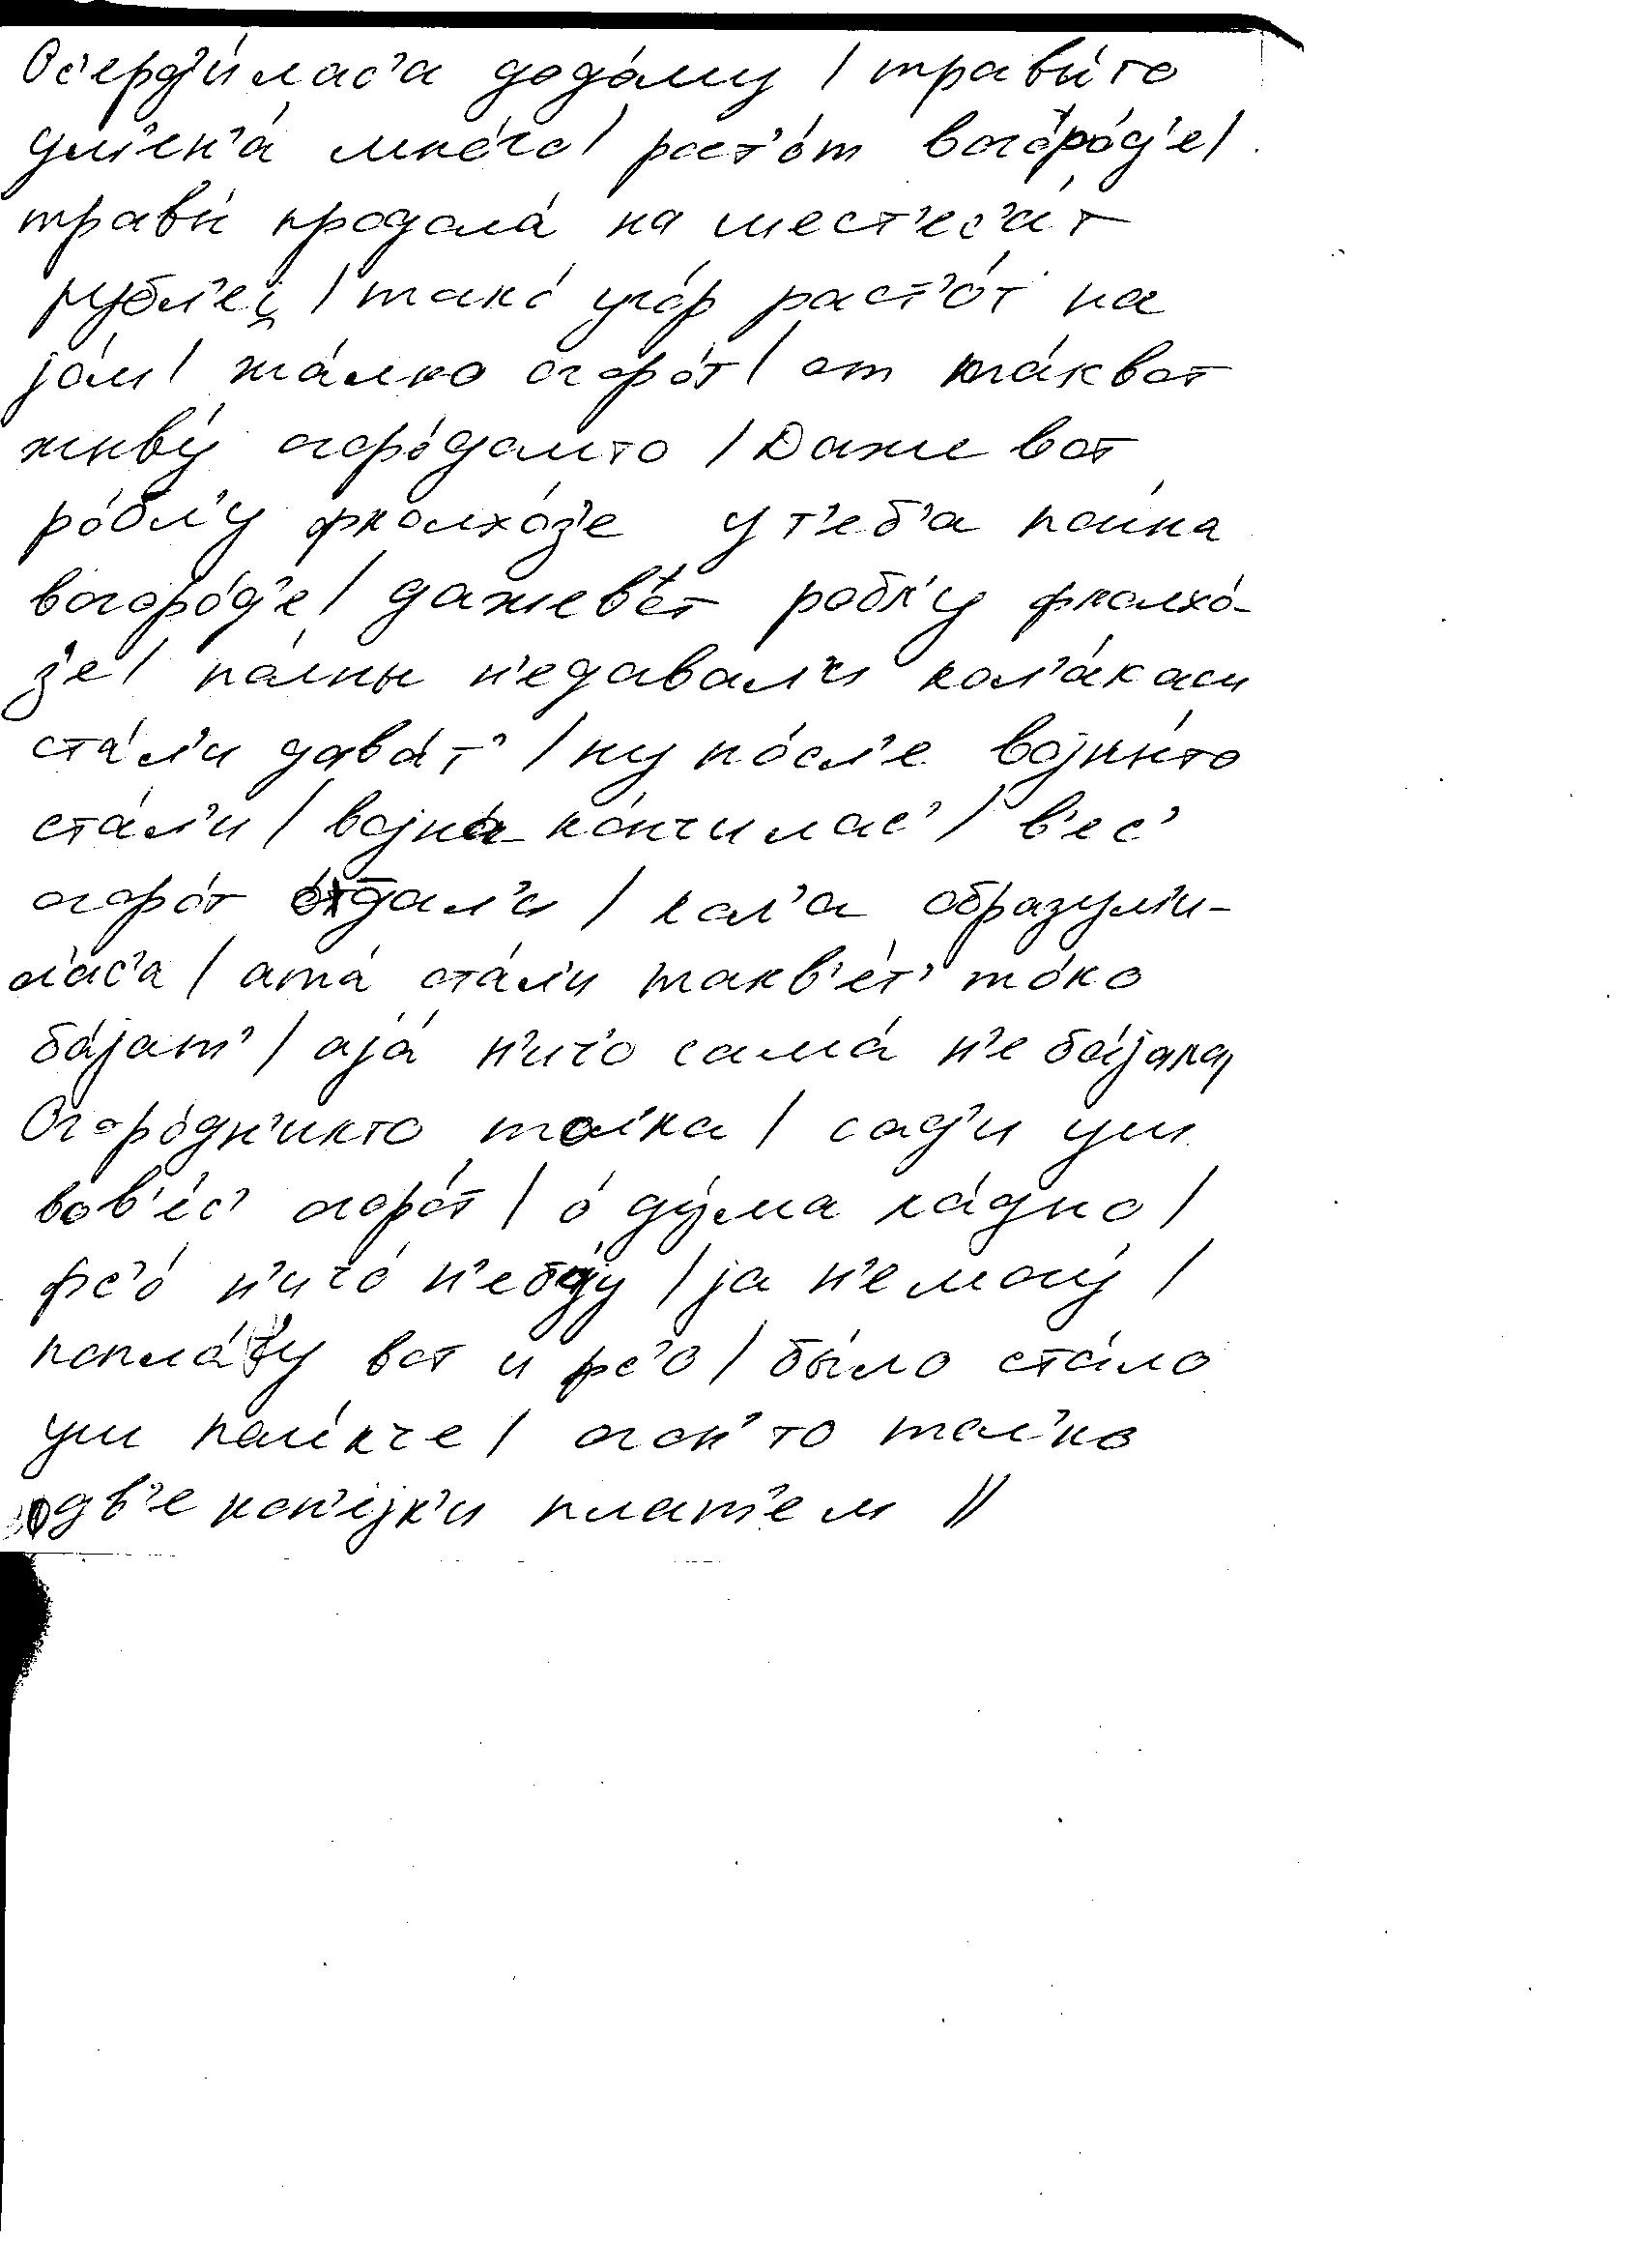 Ос'ерд'и́лас'а додо́му / травы́то
ум'ен'а́ мно́го / раст'о́т вогоро́д'е /
травы́ продала́ на шест'ес'а́т
рубл'еј / тако́ уго́р раст'о́т на
јом / жа́лко огоро́т / от та́к вот
живу́ огоро́домто / Даже вот
ро́бл'у фколхо́з'е у т'еб'а
вогоро́д'е / даже во́т робл'у фколхо́-
з'е / н'едавал'и кол'а́каси
ста́л'и дава́т' / ну по́сл'е војны́то
ста́л'и / војна́ ко́нчилас' / в'ес'
огоро́т отдал'и / кол'а образум'и-
лас'а / ата́ ста́л'и такв'е́т' то́ко
ба́јат' / аја́ н'ич'о сама́ н'е ба́јала
Огоро́дн'икто / сад'и уш
вов'е́с' огоро́т / о́ ду́ма ла́дно /
фс'о́ н'ичо́ н'ебу́ду / ја н'е могу́ /
попла́ч'у вот и фс'о / бы́ло ста́ло
уш / огон'то тол'ко
дв'е коп'ејк'и плат'ем //